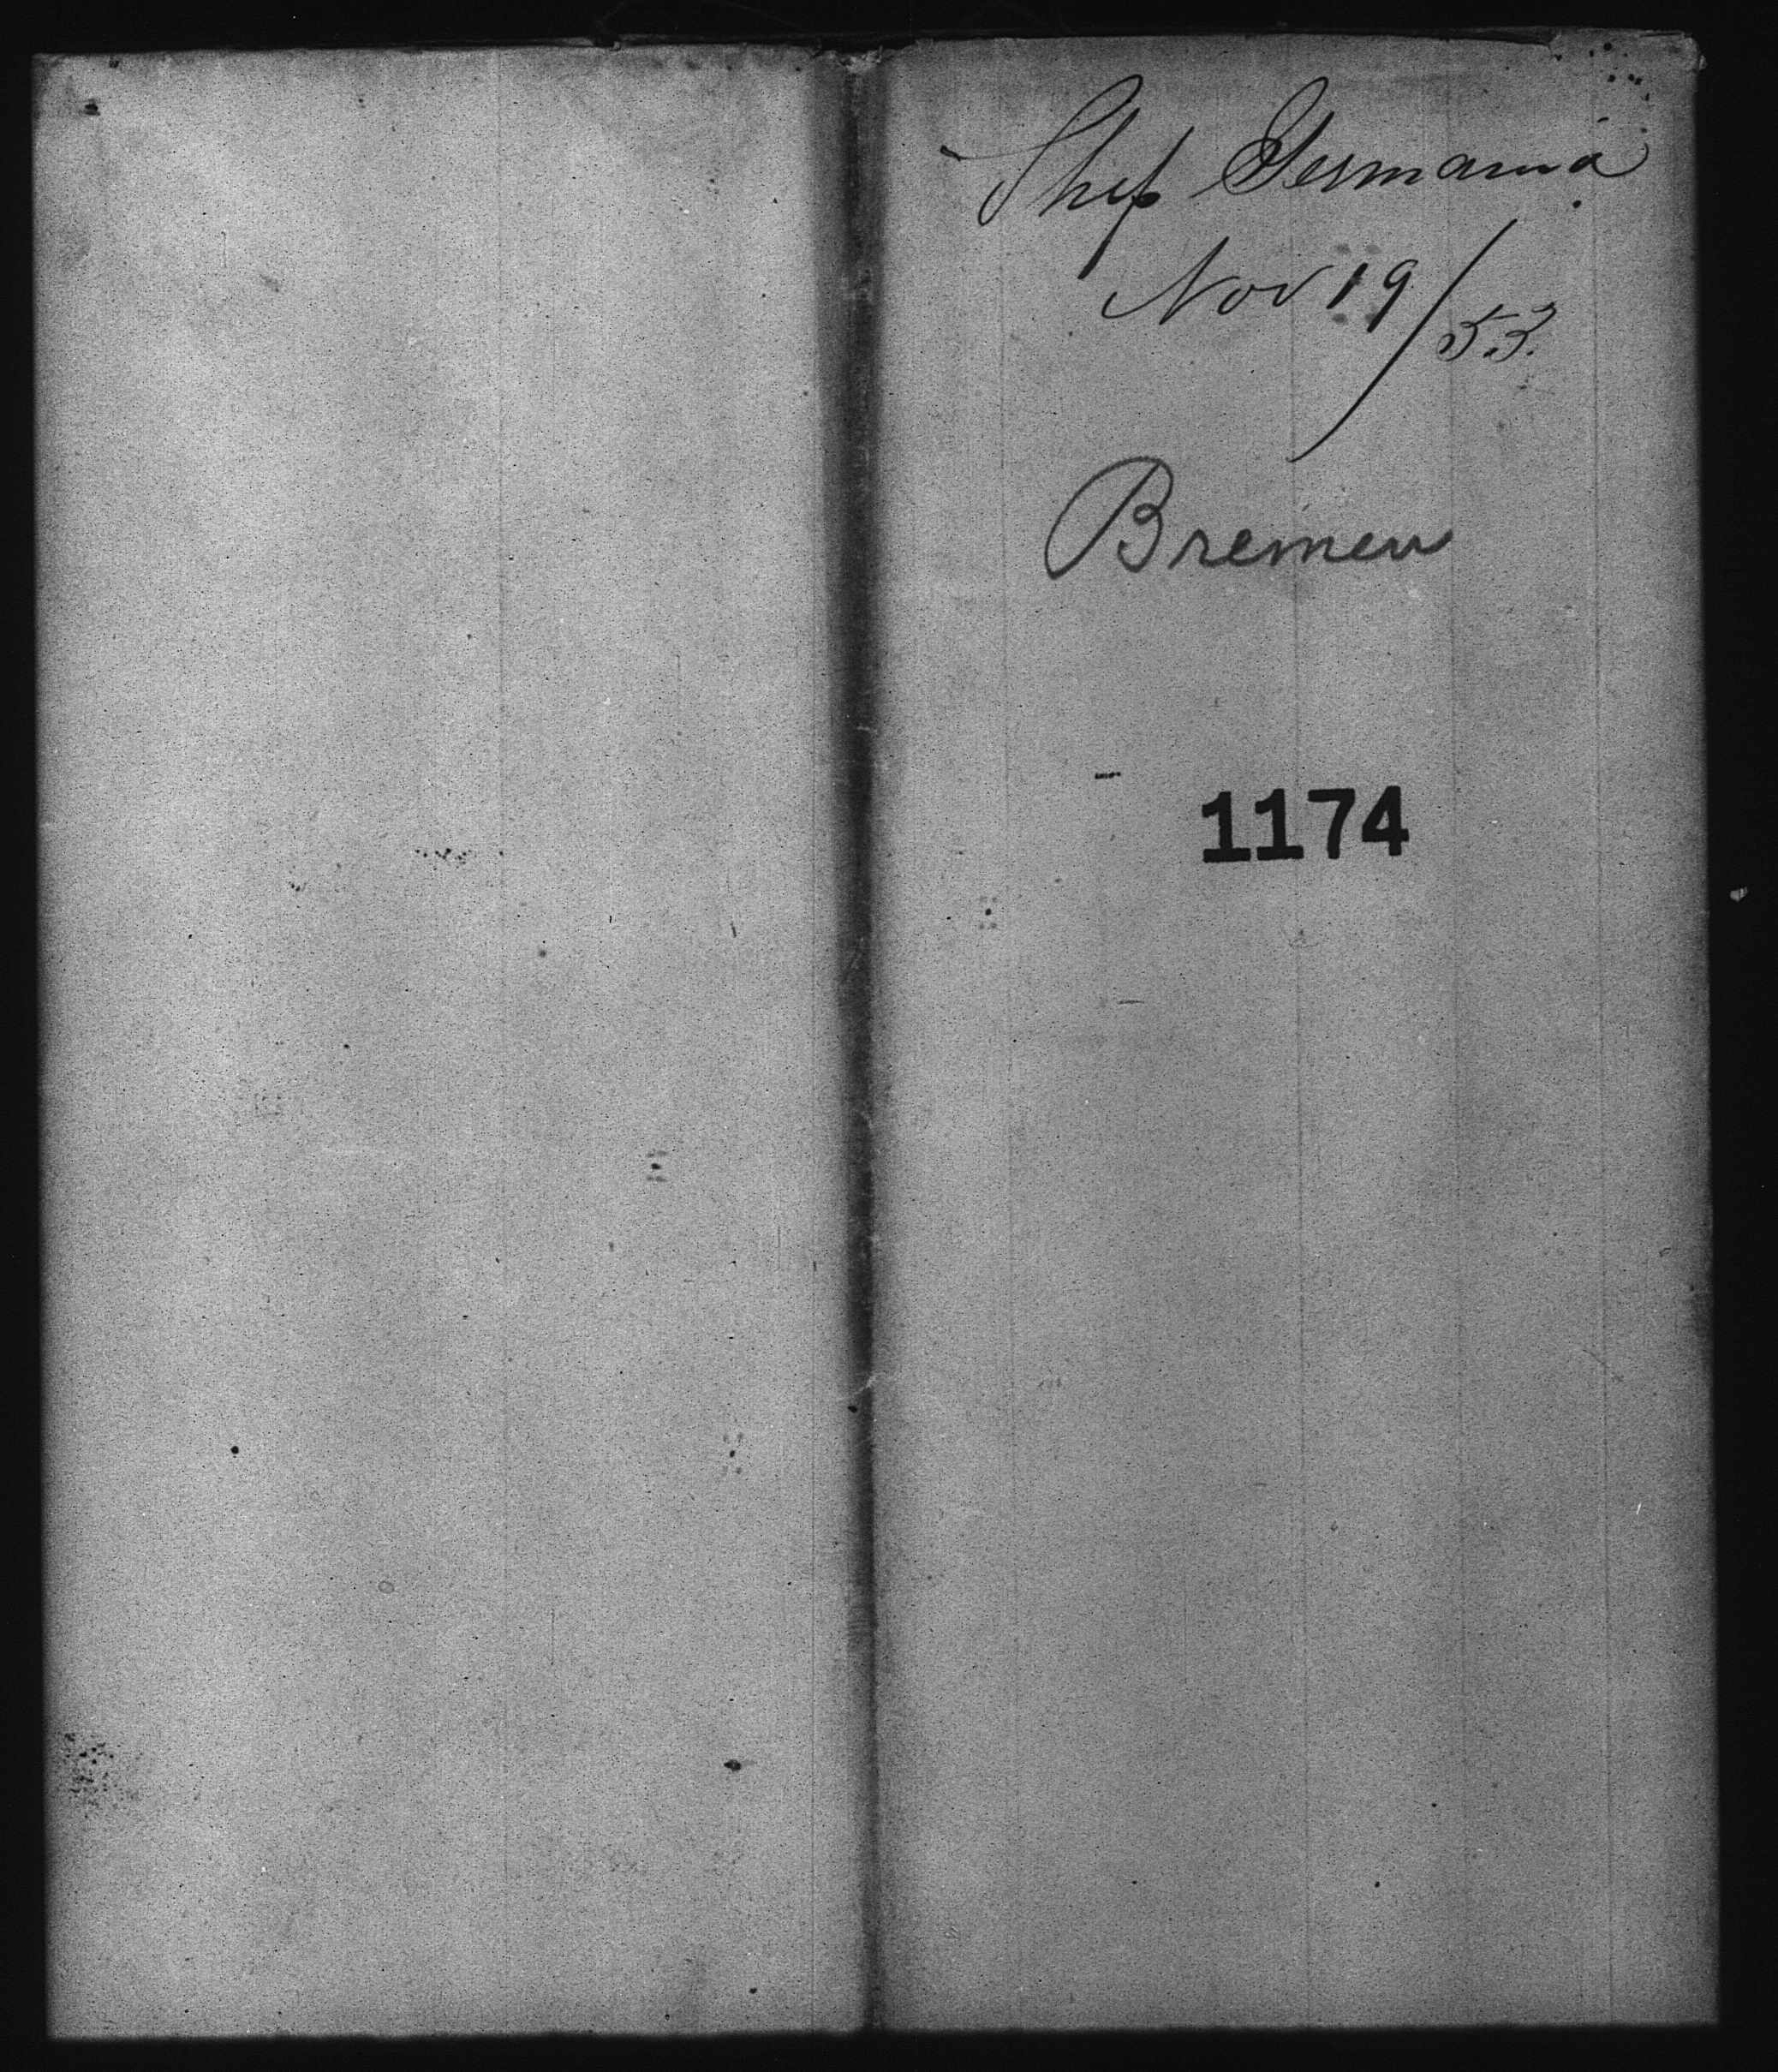 Ship Germania
Nov 19/53.
Bremen
1174